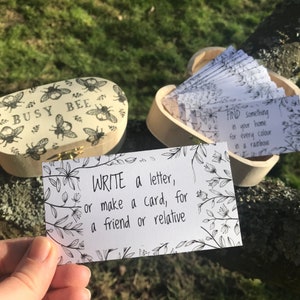 BUSY BEE
FIND something
in your home
for every colour
in a rainbow
WRITE a letter,
or make a card, for
a friend or relative